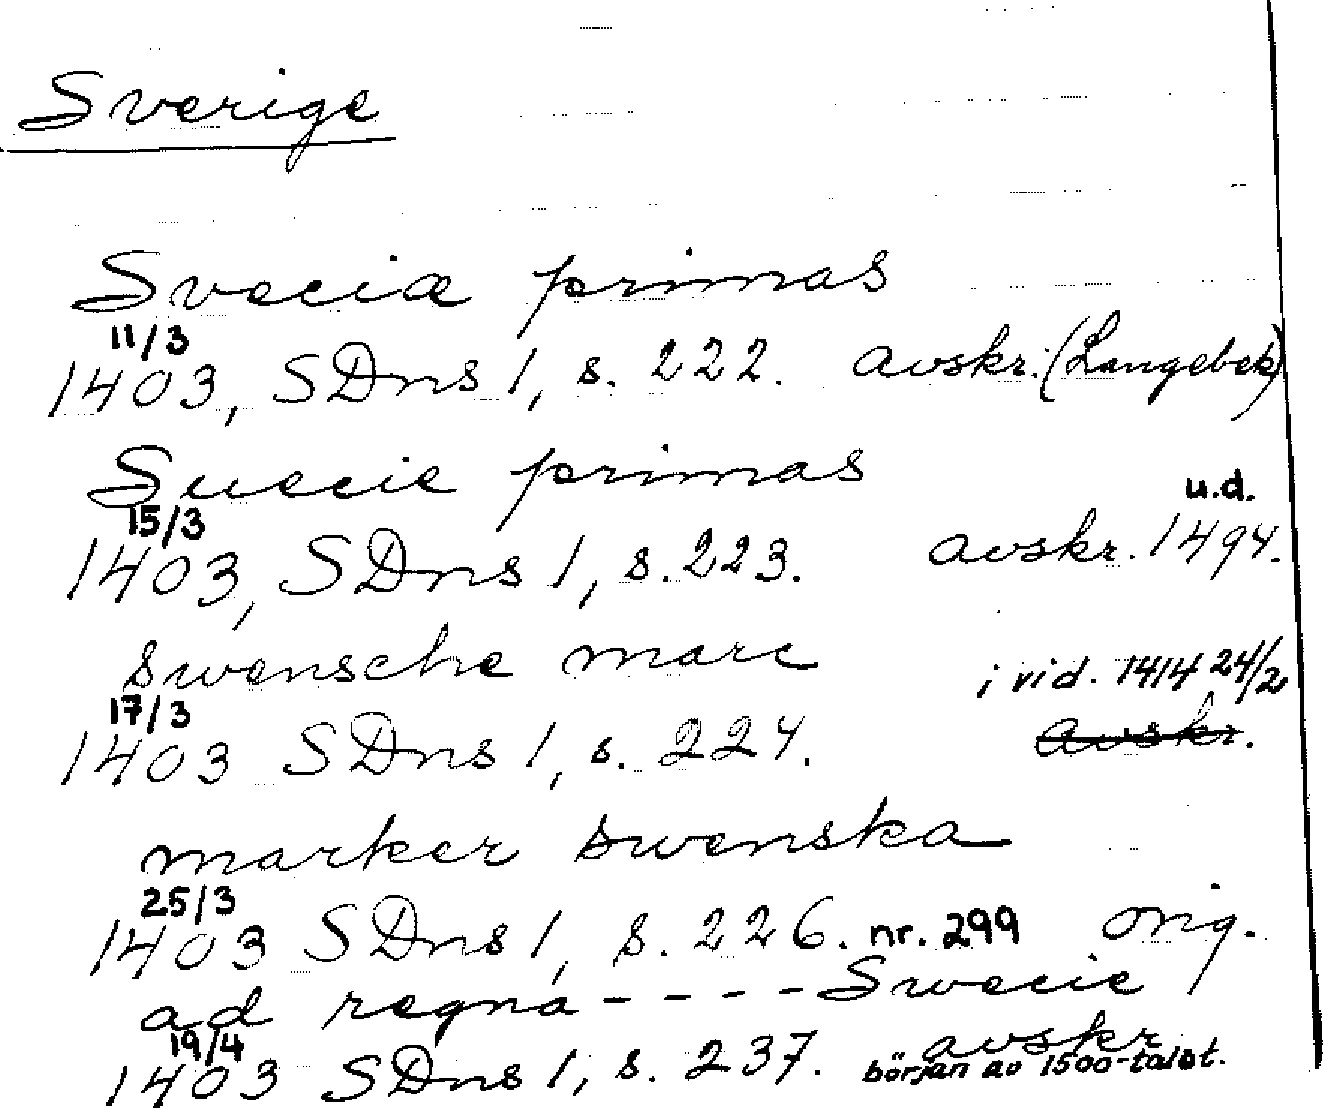 Sverige
Sveciæ primas
11/3
1403, SDns 1, s. 222. avskr. (Langebek)
Suecie primas
15/3 u.d.
1403, SDns 1, s. 223. avskr. 1494.
swensche marc
i vid. 1414 24/2
17/3
1403 SDns 1, s. 224. avskr.
marker swenska
25/3
1403 SDns 1, s. 226. nr. 299 orig.
ad regna - - - - Swecie
19/4 avskr
1403 SDns 1, s. 237. början av 1500-talet.